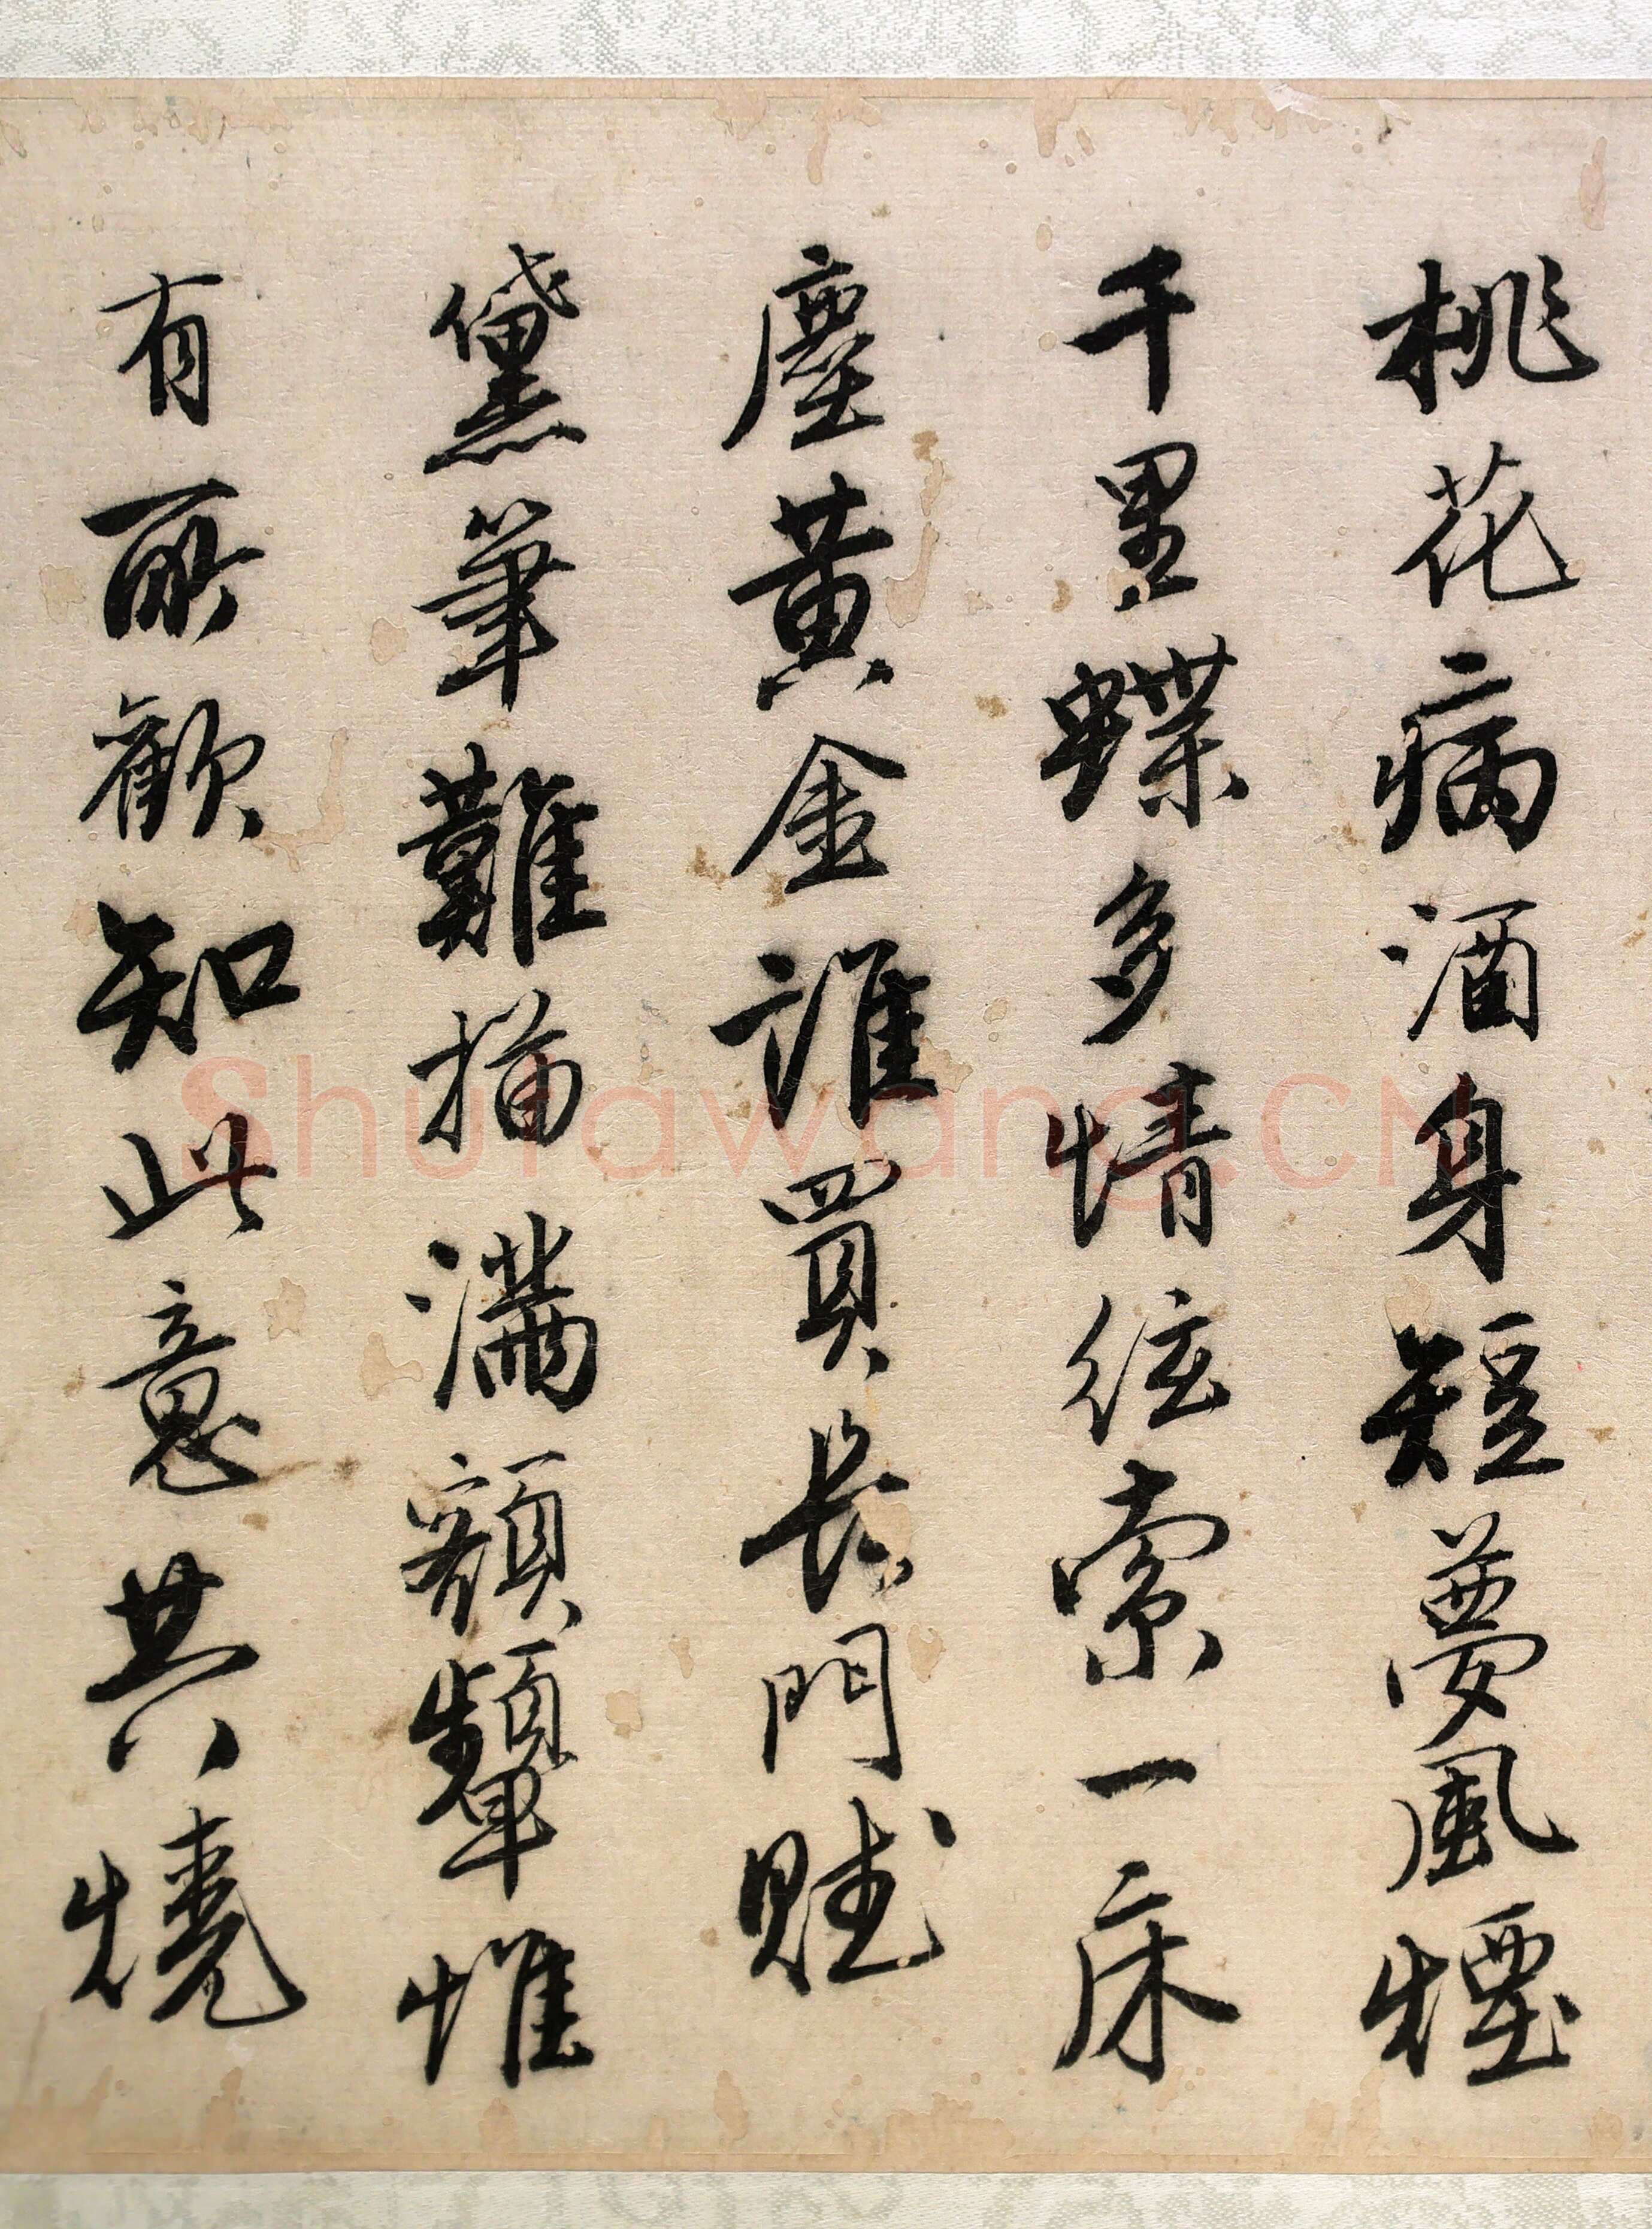 桃花病酒身短夢風煙
千里蝶多情絃索一床
塵黃金誰買長門賦
黛筆難描滿額顰惟
有所歡知此意共燒
Shufawang.CN